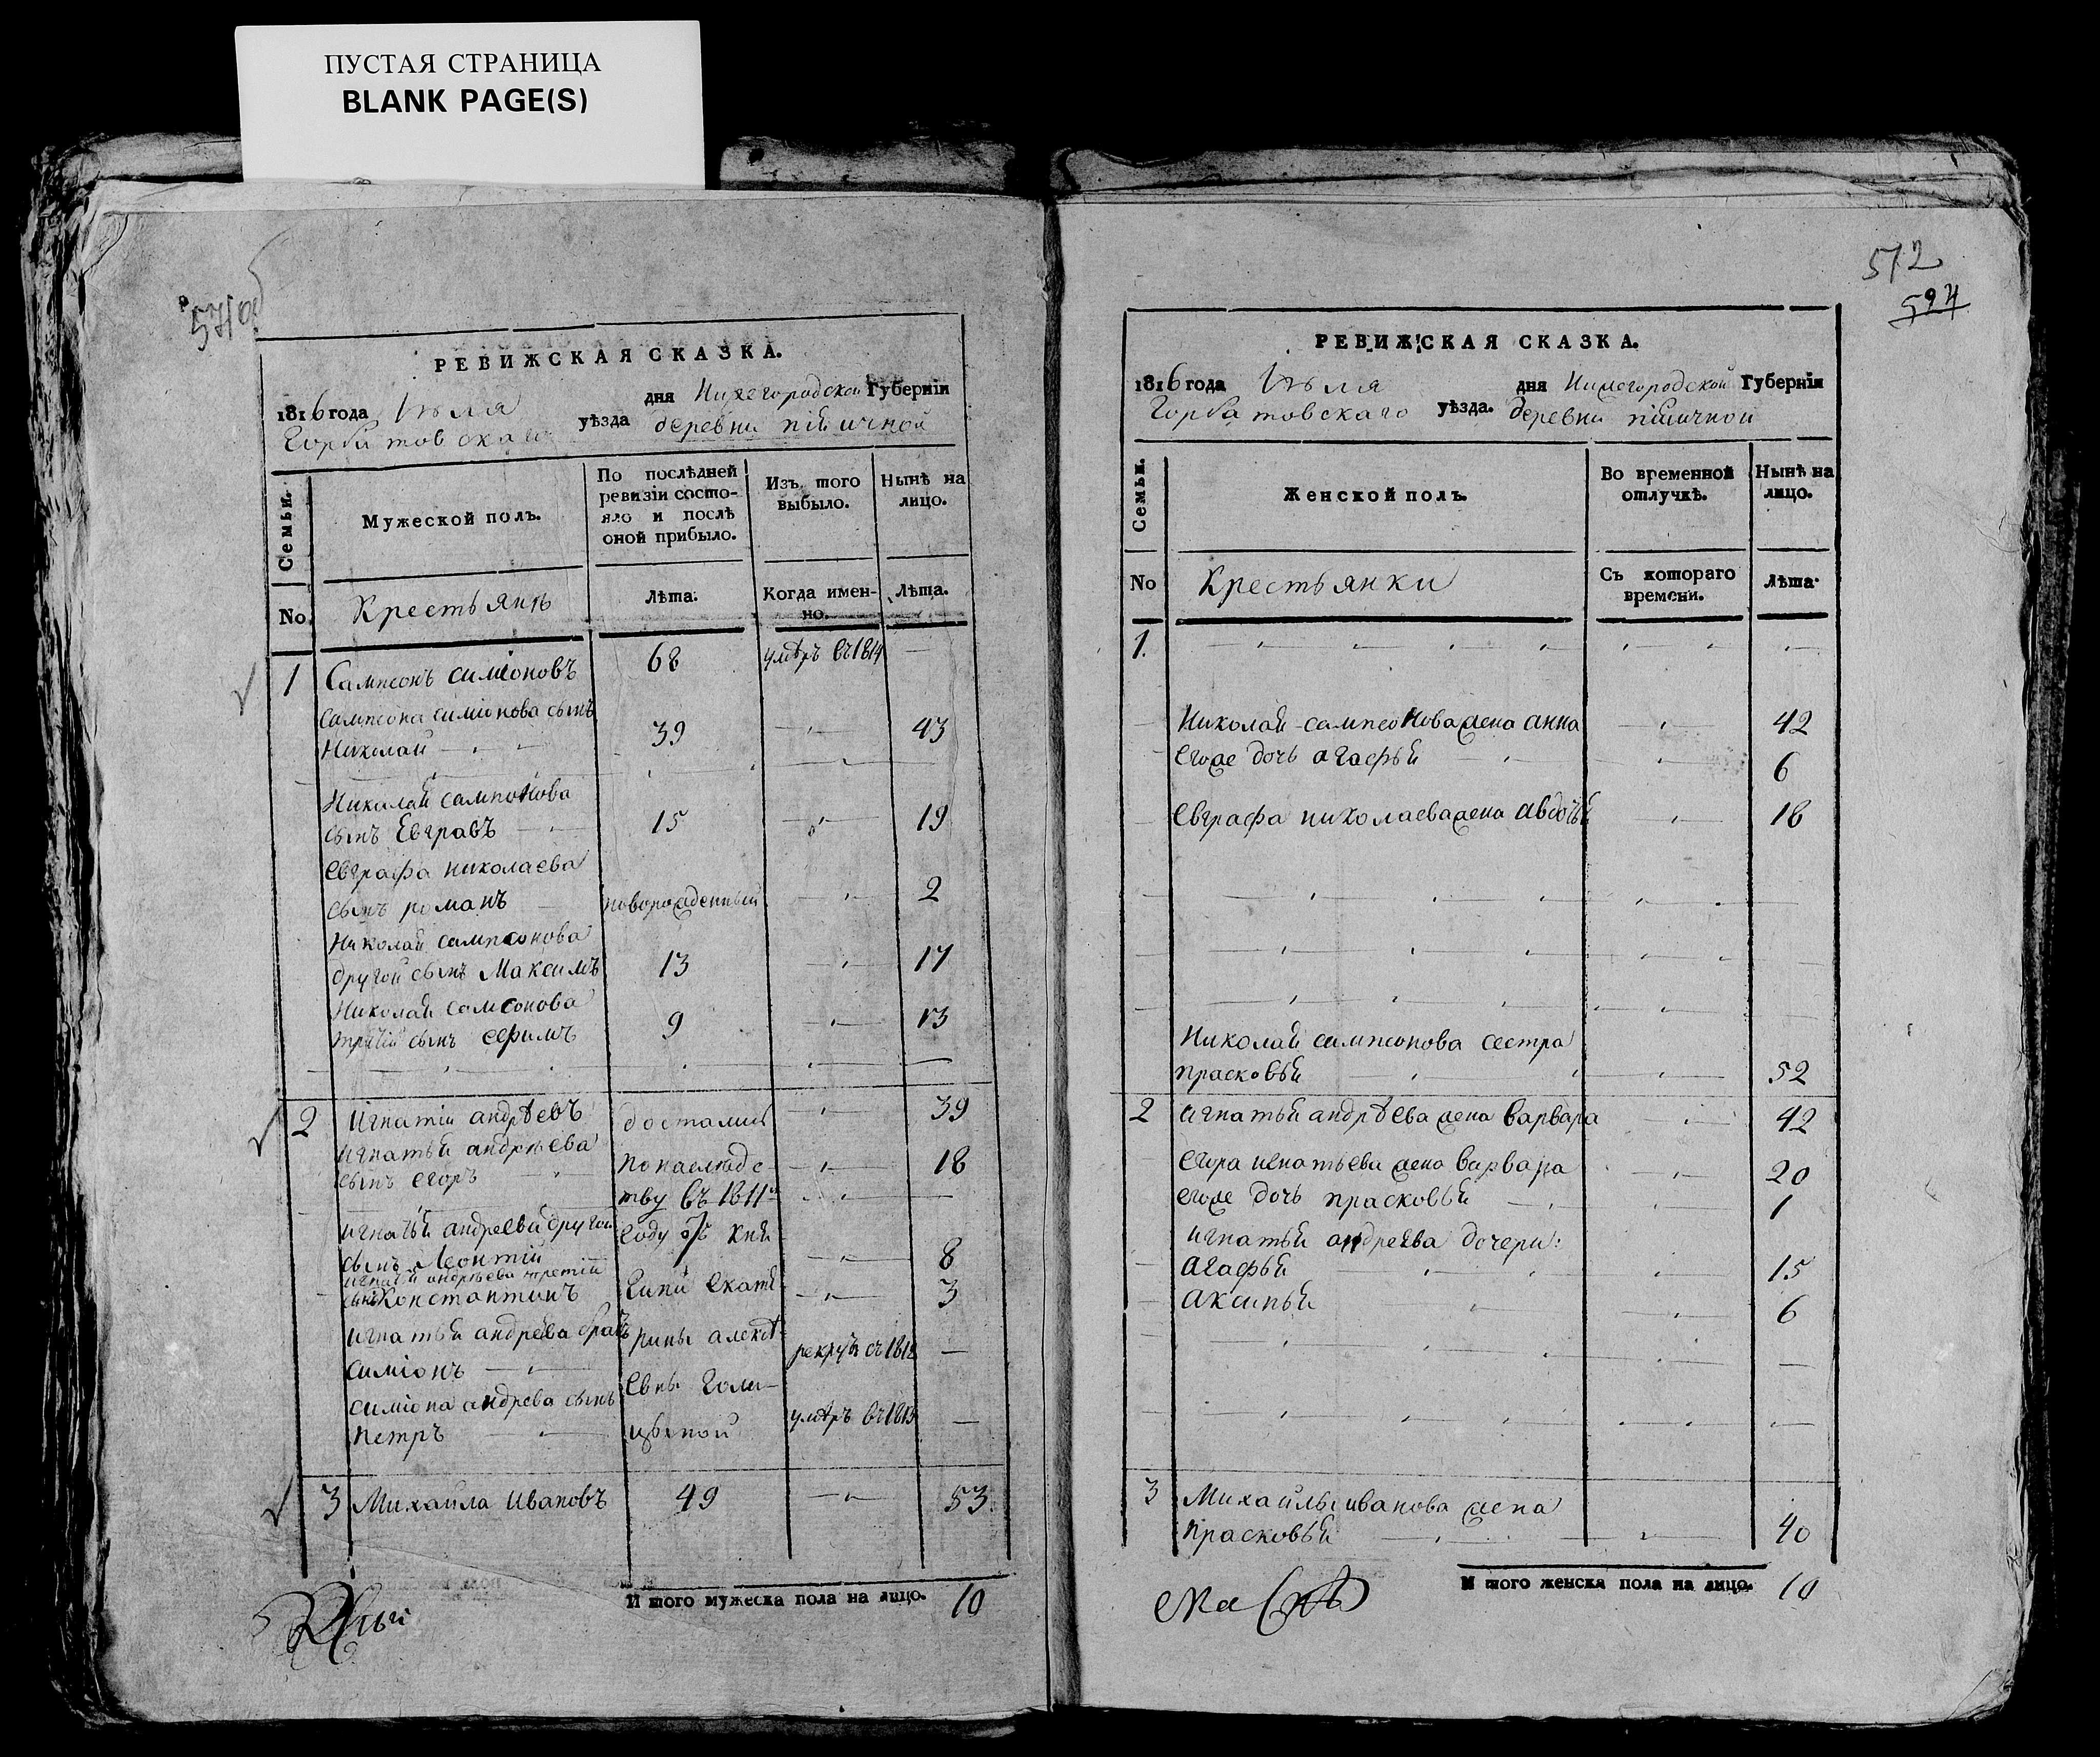 ПУСТАЯ СТРАНИЦА
BLANK PAGE(S)
РЕВИЖСКАЯ СКАЗКА.
1816 года Июля дня Нижегородской Губерніи
Горбатовскаго уѣзда деревни
Семьи.
Мужеской полъ.
По послѣдней ревизіи состояло и послѣ оной прибыло.
Изъ того выбыло.
Нынѣ на лицо.
No
Крестьянъ
Лѣта.
Когда именно.
Лѣта.
1 Сампсонъ симіоновъ 68 умѣръ въ 1814 —
Сампсона симіонова сынъ
Николай 39 43
Николай сампсонова
сынъ Евгравъ 15 19
Евграфа николаева
сынъ романъ новорожденный 2
Николай сампсонова
другой сынъ Максимъ 13 17
Николай самсонова
третій сынъ ефимъ 9 13
2 Игнатіи андрѣевъ достались 39
игнатьй андрѣева
сынъ егоръ понаследс 18
тву въ 1811м
игнатьй андреева другои году отъ кня
сынъ Леонтіи 8
игнатьй андрѣева третіи
сынъ Константинъ гини екате 3
игнатьй андрѣева братъ рины алексѣ
симіонъ рекрутъ съ 1812 —
симіона андрева сынъ евны голи
петръ цыной умѣръ въ 1813 —
3 Михаила ивановъ 49 53.
Итого мужеска пола на лицо. 10
572
594
РЕВИЖСКАЯ СКАЗКА.
1816 года Июля дня Нижегородской Губерніи
Горбатовскаго уѣзда. деревни
Семьи.
Женской полъ.
Во временной отлучкѣ.
Нынѣ на лицо.
No
Крестьянки
Съ котораго времени.
Лѣта.
1.
Николай сампсонова жена анна 42
егоже дочь агафьй 6
евграфа николаева жена авдотьй 18
Николай сампсонова сестра
прасковьй 52
2 игнатьй андрѣева жена варвара 42
егора игнатьева жена варвара 20
егоже дочь прасковьй 1
игнатьй андреева дочери:
агафьй 15
аксиньй 6
3 Михайлы иванова жена
прасковьй 40
Итого женска пола на лицо. 10